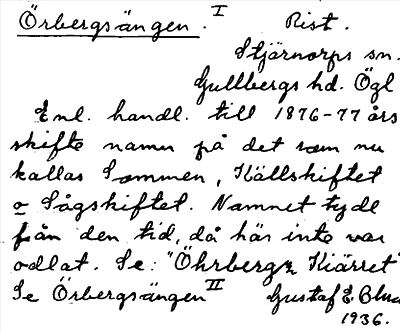 Örbergsängen. I Rist.
Stjärnorps sn.
Gullbergs hd. Ögl
Enl. handl. till 1876-77 års
skifte namn på det som nu
kallas Sommen, Källskiftet
o Sågskiftet. Namnet tydl
från den tid, då här inte var
odlat. Se: "Öhrbergz Kiärret"
Se Örbergsängen II Gustaf E.
1936.